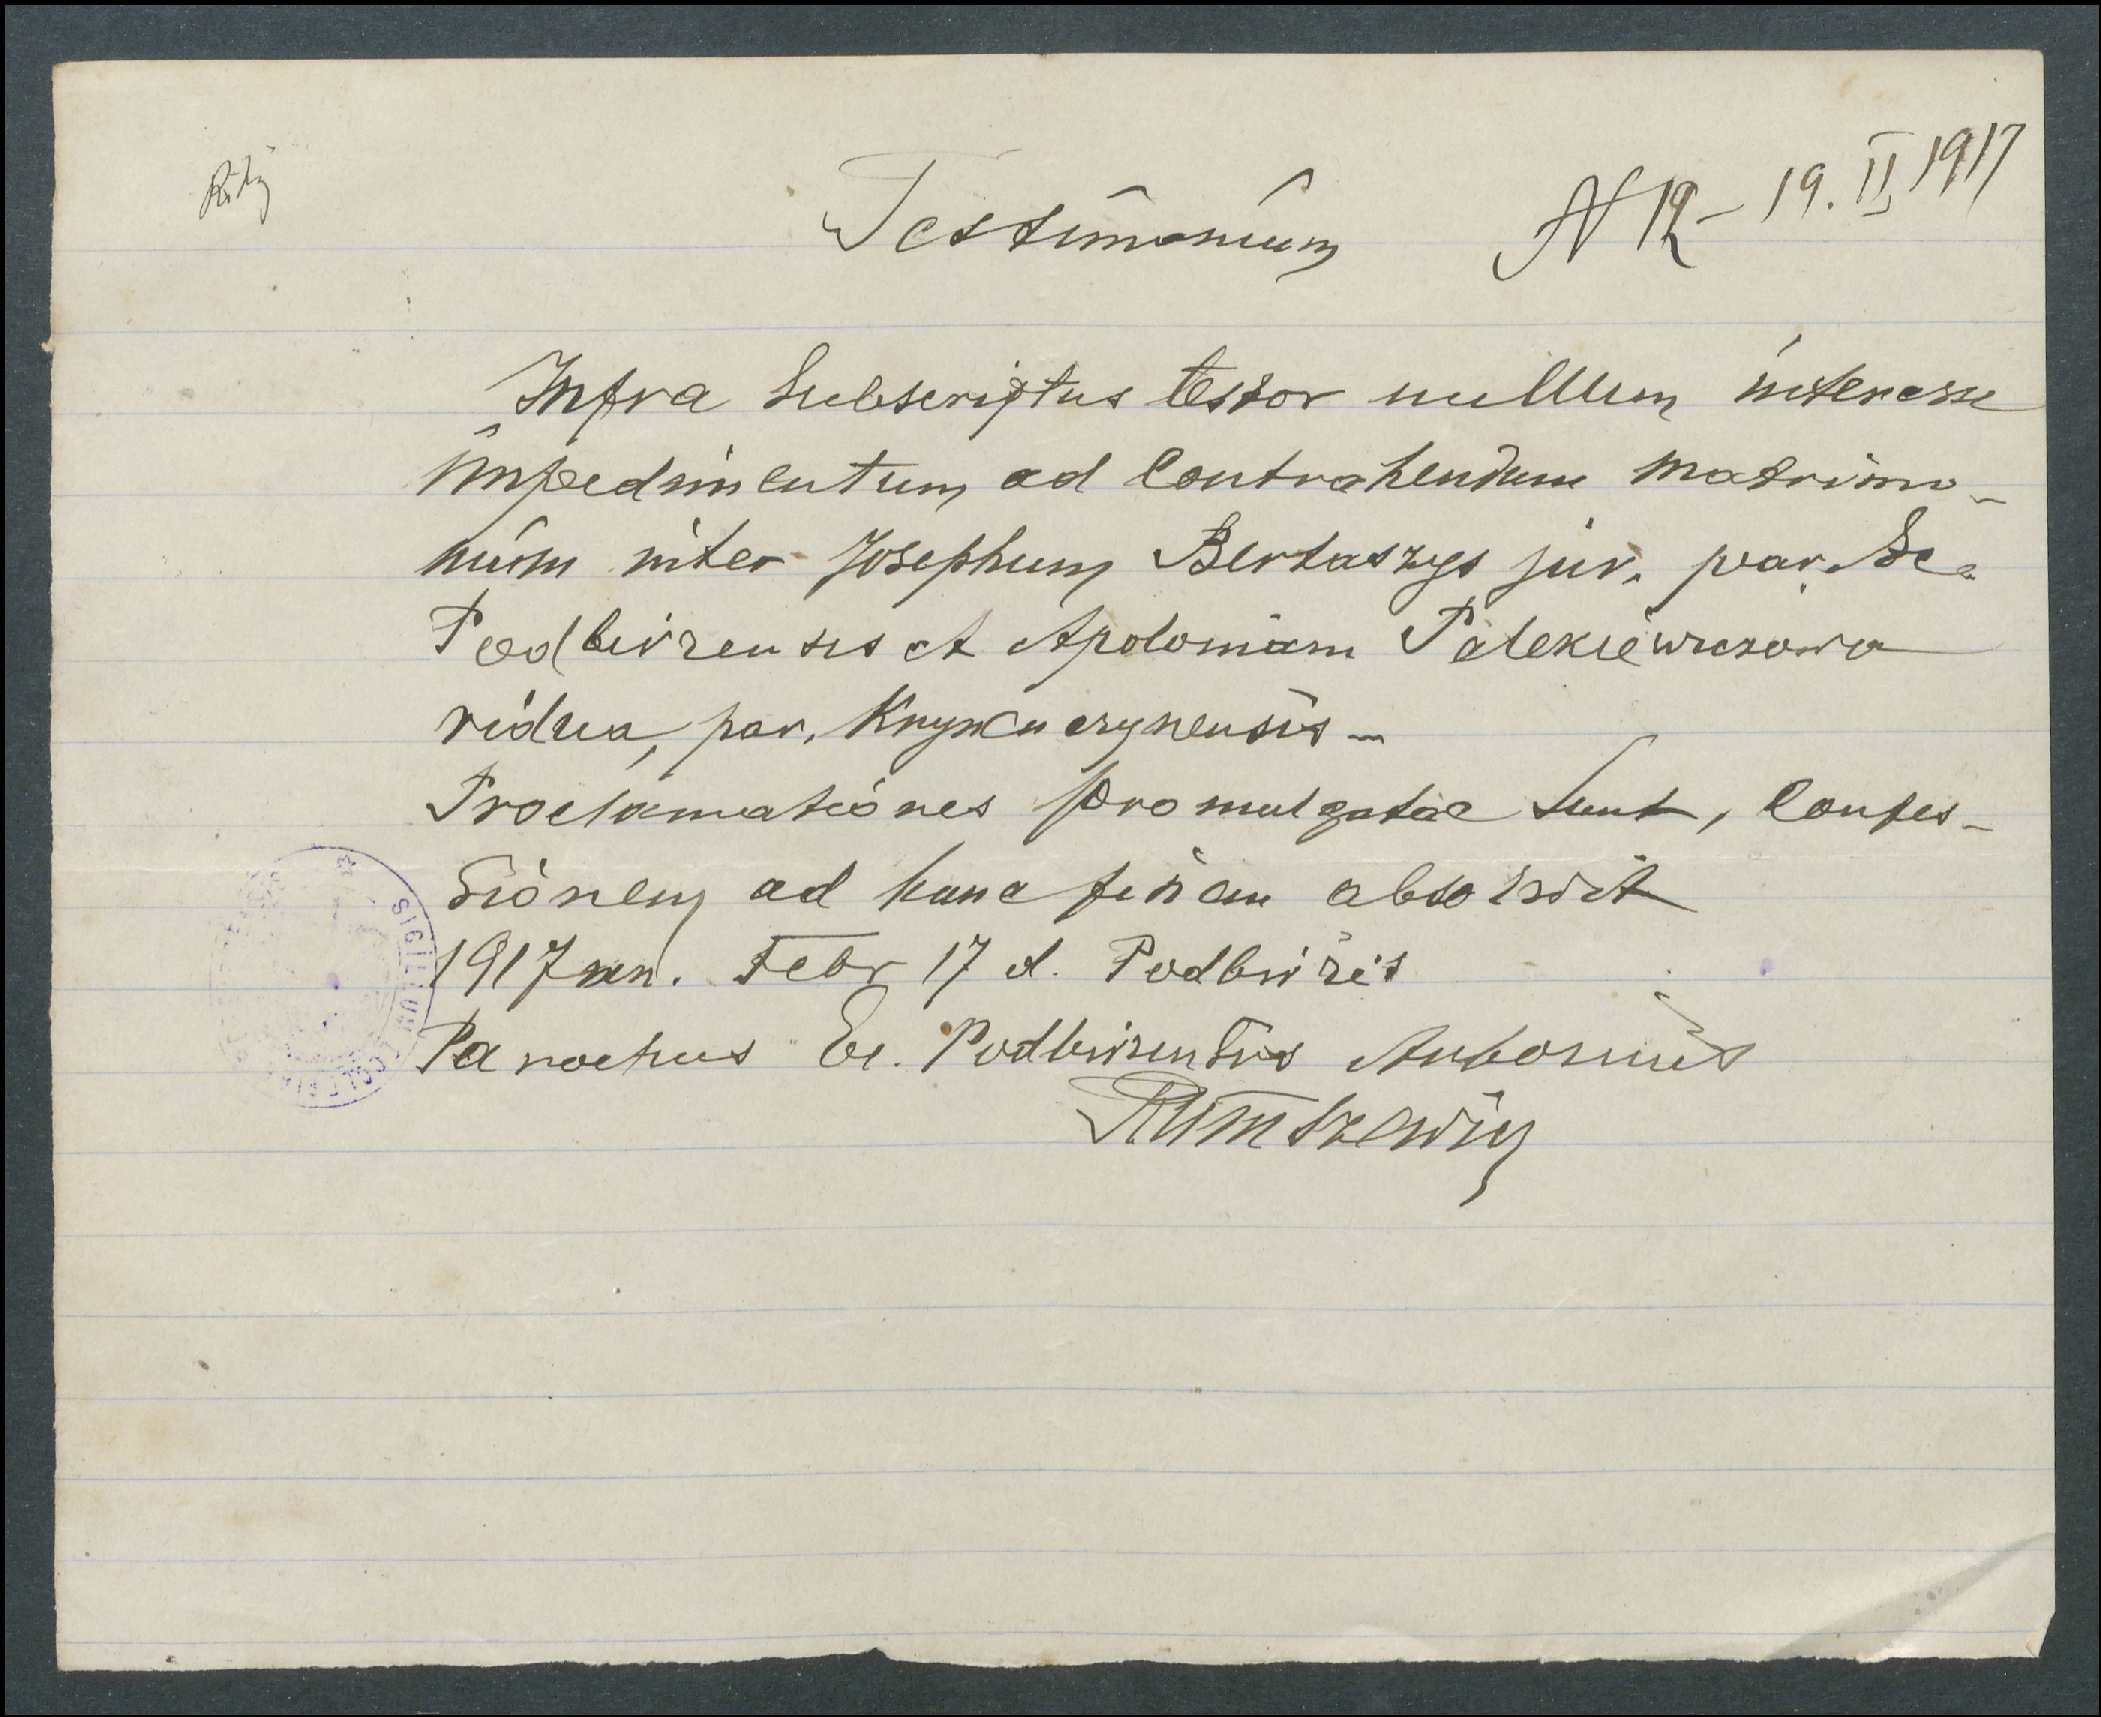 Testimonium N 12 - 19. II 1917
Infra Subscriptus testor nullum interesse
impedimentum ad Contrahendum matrimo-
nium inter Josephum Bertaszys juv. par.
Podbirzensis et Apoloniam Petekiewiczowa
vidua, par. Krynczynensis -
Proclamationes promulgatae Sunt, Confes-
sionem ad hanc finem absolvit
1917 an. Febr 17 d. Podbirzis
Parochus Ec. Podbirzensis Antonius
Rumszewicz
SIGILLUM